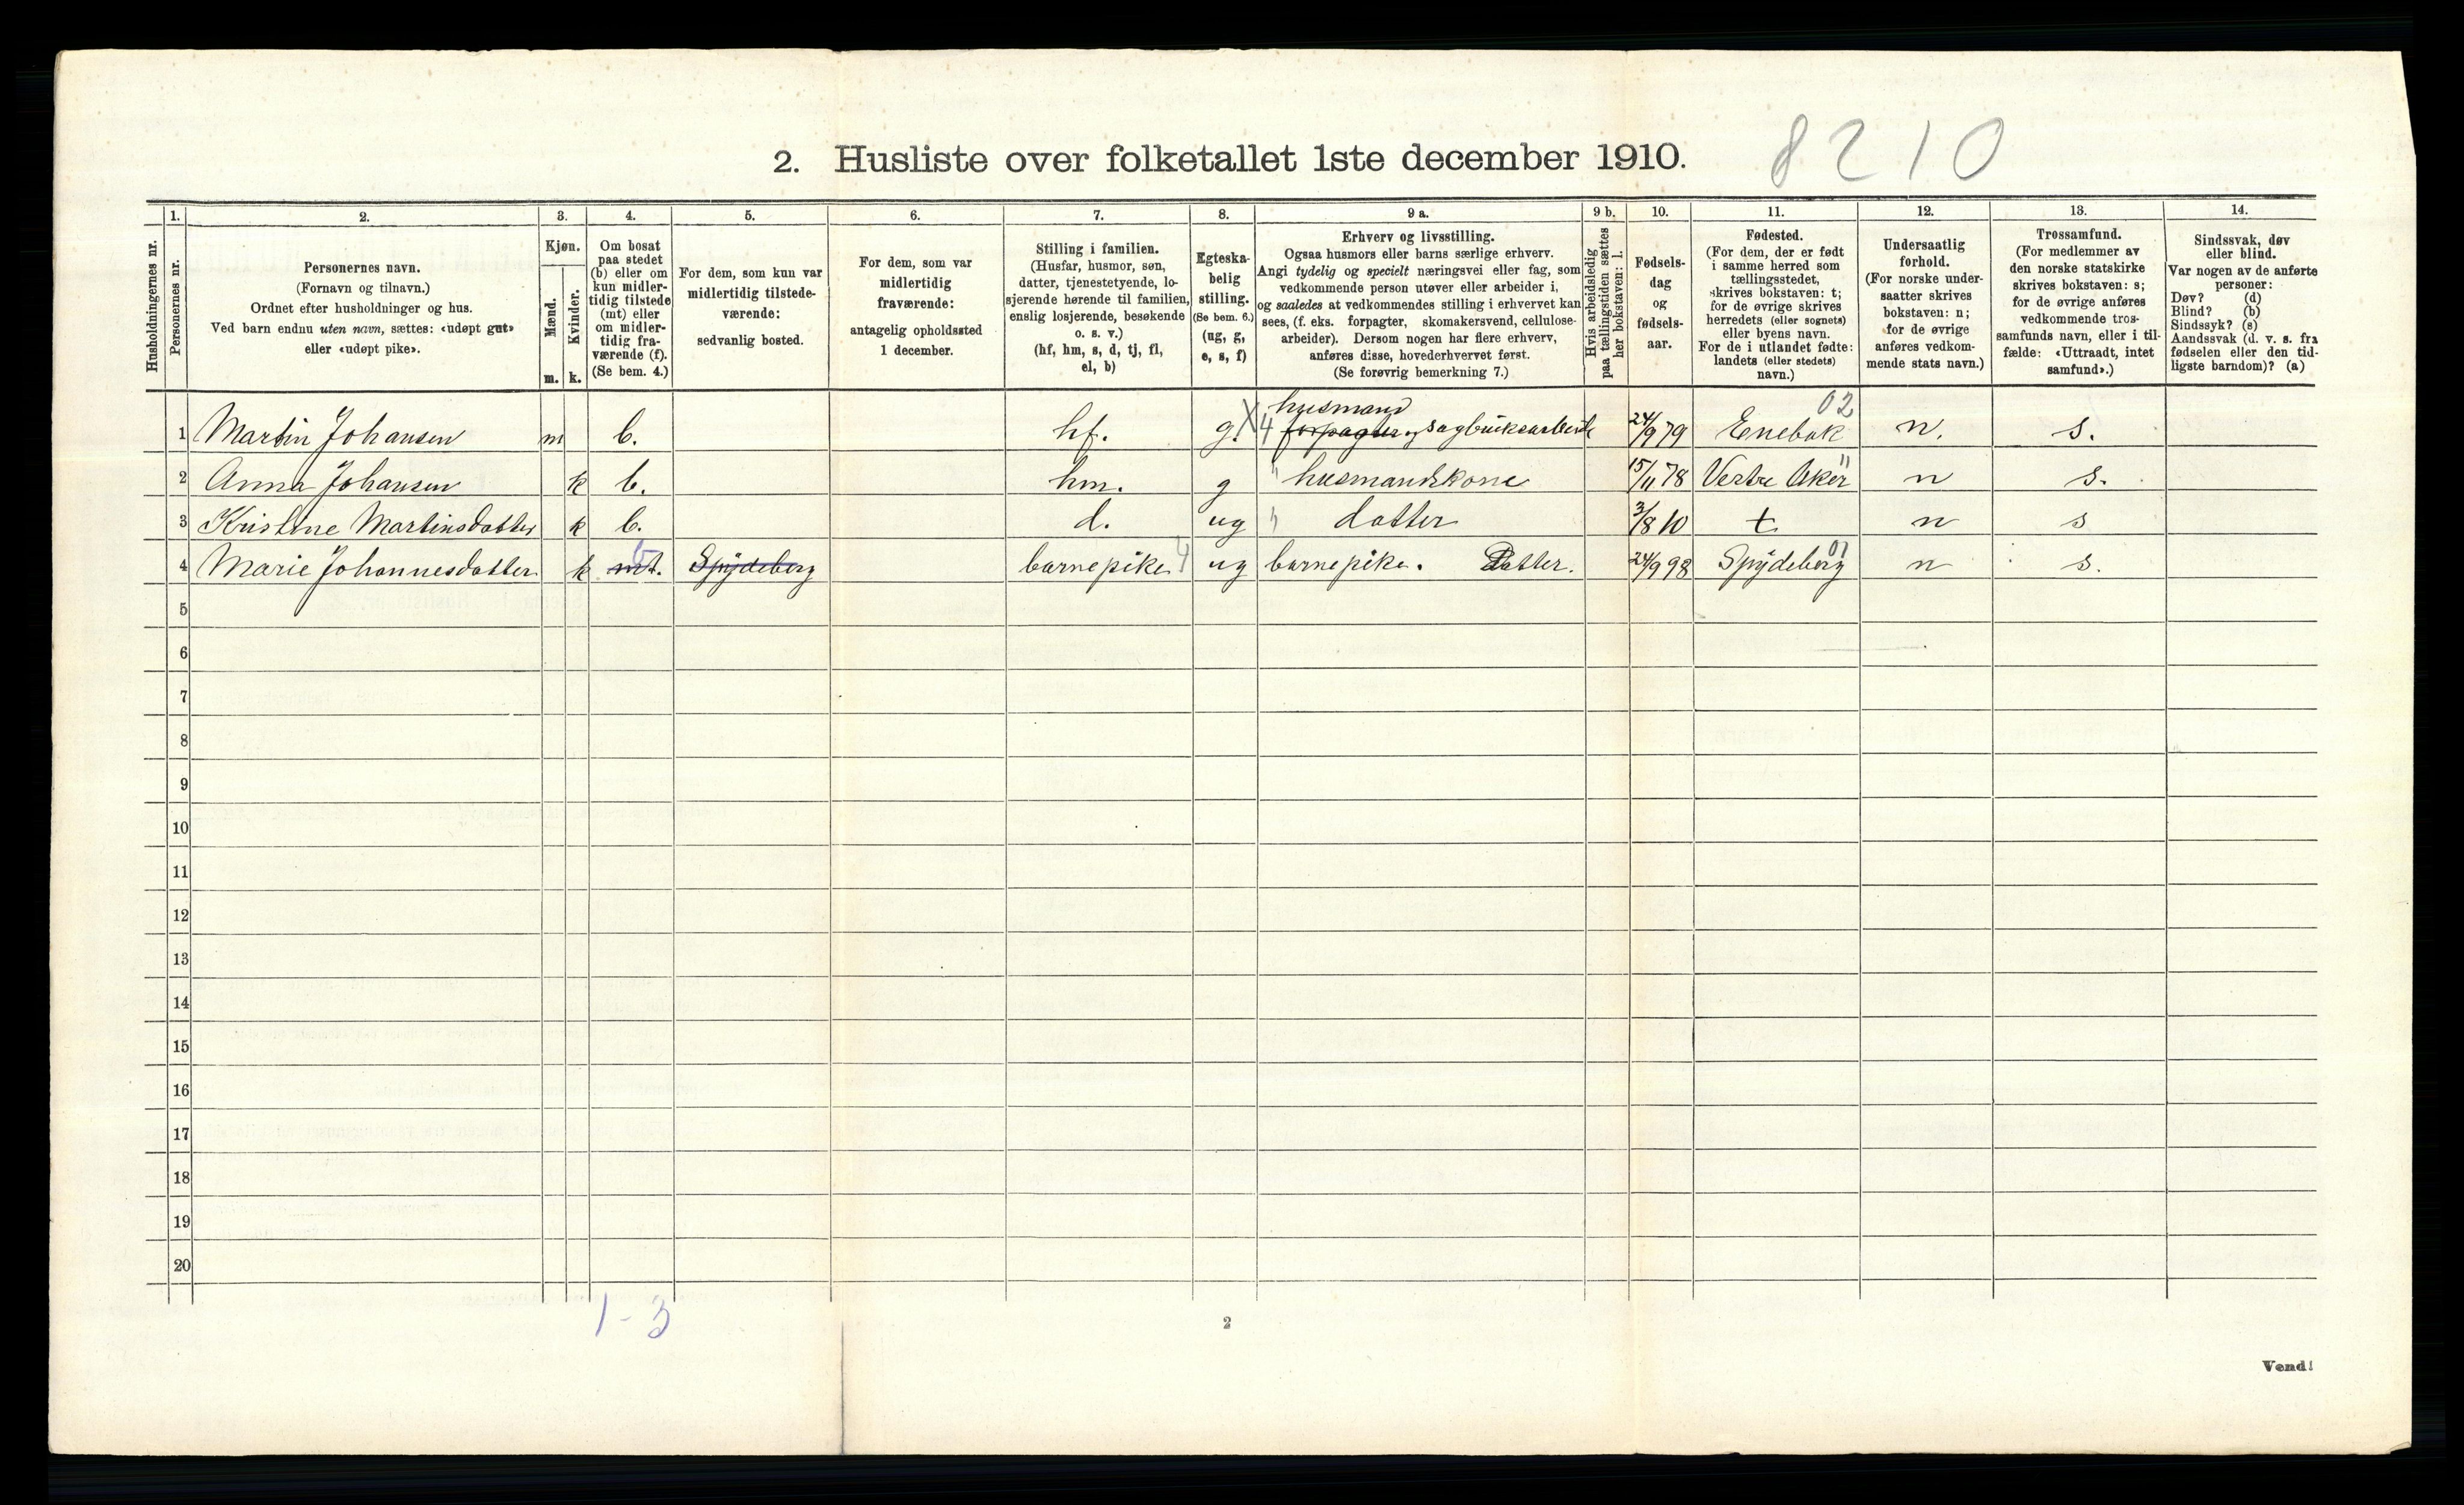 2. Husliste over folketallet 1ste december 1910.
8210
1. 2. 3. 4. 5. 6. 7. 8. 9 a. 9 b. 10. 11. 12. 13. 14.
Husholdningernes nr.
Personernes nr.
Personernes navn.
(Fornavn og tilnavn.)
Ordnet efter husholdninger og hus.
Ved barn endnu uten navn, sættes: «udøpt gut»
eller «udøpt pike».
Kjøn.
Mænd.
Kvinder.
m. k.
Om bosat
paa stedet
(b) eller om
kun midler-
tidig tilstede
(mt) eller
om midler-
tidig fra-
værende (f).
(Se bem. 4.)
For dem, som kun var
midlertidig tilstede-
værende:
sedvanlig bosted.
For dem, som var
midlertidig
fraværende:
antagelig opholdssted
1 december.
Stilling i familien.
(Husfar, husmor, søn,
datter, tjenestetyende, lo-
sjerende hørende til familien,
enslig losjerende, besøkende
o. s. v.)
(hf, hm, s, d, tj, fl,
el, b)
Egteska-
belig
stilling.
(Se bem. 6.)
(ug, g,
e, s, f)
Erhverv og livsstilling.
Ogsaa husmors eller barns særlige erhverv.
Angi tydelig og specielt næringsvei eller fag, som
vedkommende person utøver eller arbeider i,
og saaledes at vedkommendes stilling i erhvervet kan
sees, (f. eks. forpagter, skomakersvend, cellulose-
arbeider). Dersom nogen har flere erhverv,
anføres disse, hovederhvervet først.
(Se forøvrig bemerkning 7.)
Hvis arbeidsledig
paa tællingstiden sættes
her bokstaven: l.
Fødsels-
dag
og
fødsels-
aar.
Fødested.
(For dem, der er født
i samme herred som
tællingsstedet,
skrives bokstaven: t;
for de øvrige skrives
herredets (eller sognets)
eller byens navn.
For de i utlandet fødte:
landets (eller stedets)
navn.)
Undersaatlig
forhold.
(For norske under-
saatter skrives
bokstaven: n;
for de øvrige
anføres vedkom-
mende stats navn.)
Trossamfund.
(For medlemmer av
den norske statskirke
skrives bokstaven: s;
for de øvrige anføres
vedkommende tros-
samfunds navn, eller i til-
fælde: «Uttraadt, intet
samfund».)
Sindssvak, døv
eller blind.
Var nogen av de anførte
personer:
Døv? (d)
Blind? (b)
Sindssyk? (s)
Aandssvak (d. v. s. fra
fødselen eller den tid-
ligste barndom)? (a)
husmand 02
1 Martin Johansen m b. hf. g. X4 forpagter og sagbruksarbeide 24/9 79 Enebak n. s.
2 Anna Johansen k b. hm. g " husmandskone 15/11 78 Vestre Aker " n s.
3 Kristine Martinsdatter k b. d. ug " datter 3/8 10 t n s
b 01
4 Marie Johannesdatter k mt. Spydeberg barnepike 4 ug barnepike. Datter. 24/9 98 Spydeberg n s.
5
6
7
8
9
10
11
12
13
14
15
16
17
18
19
20
1-3
2
Vend!